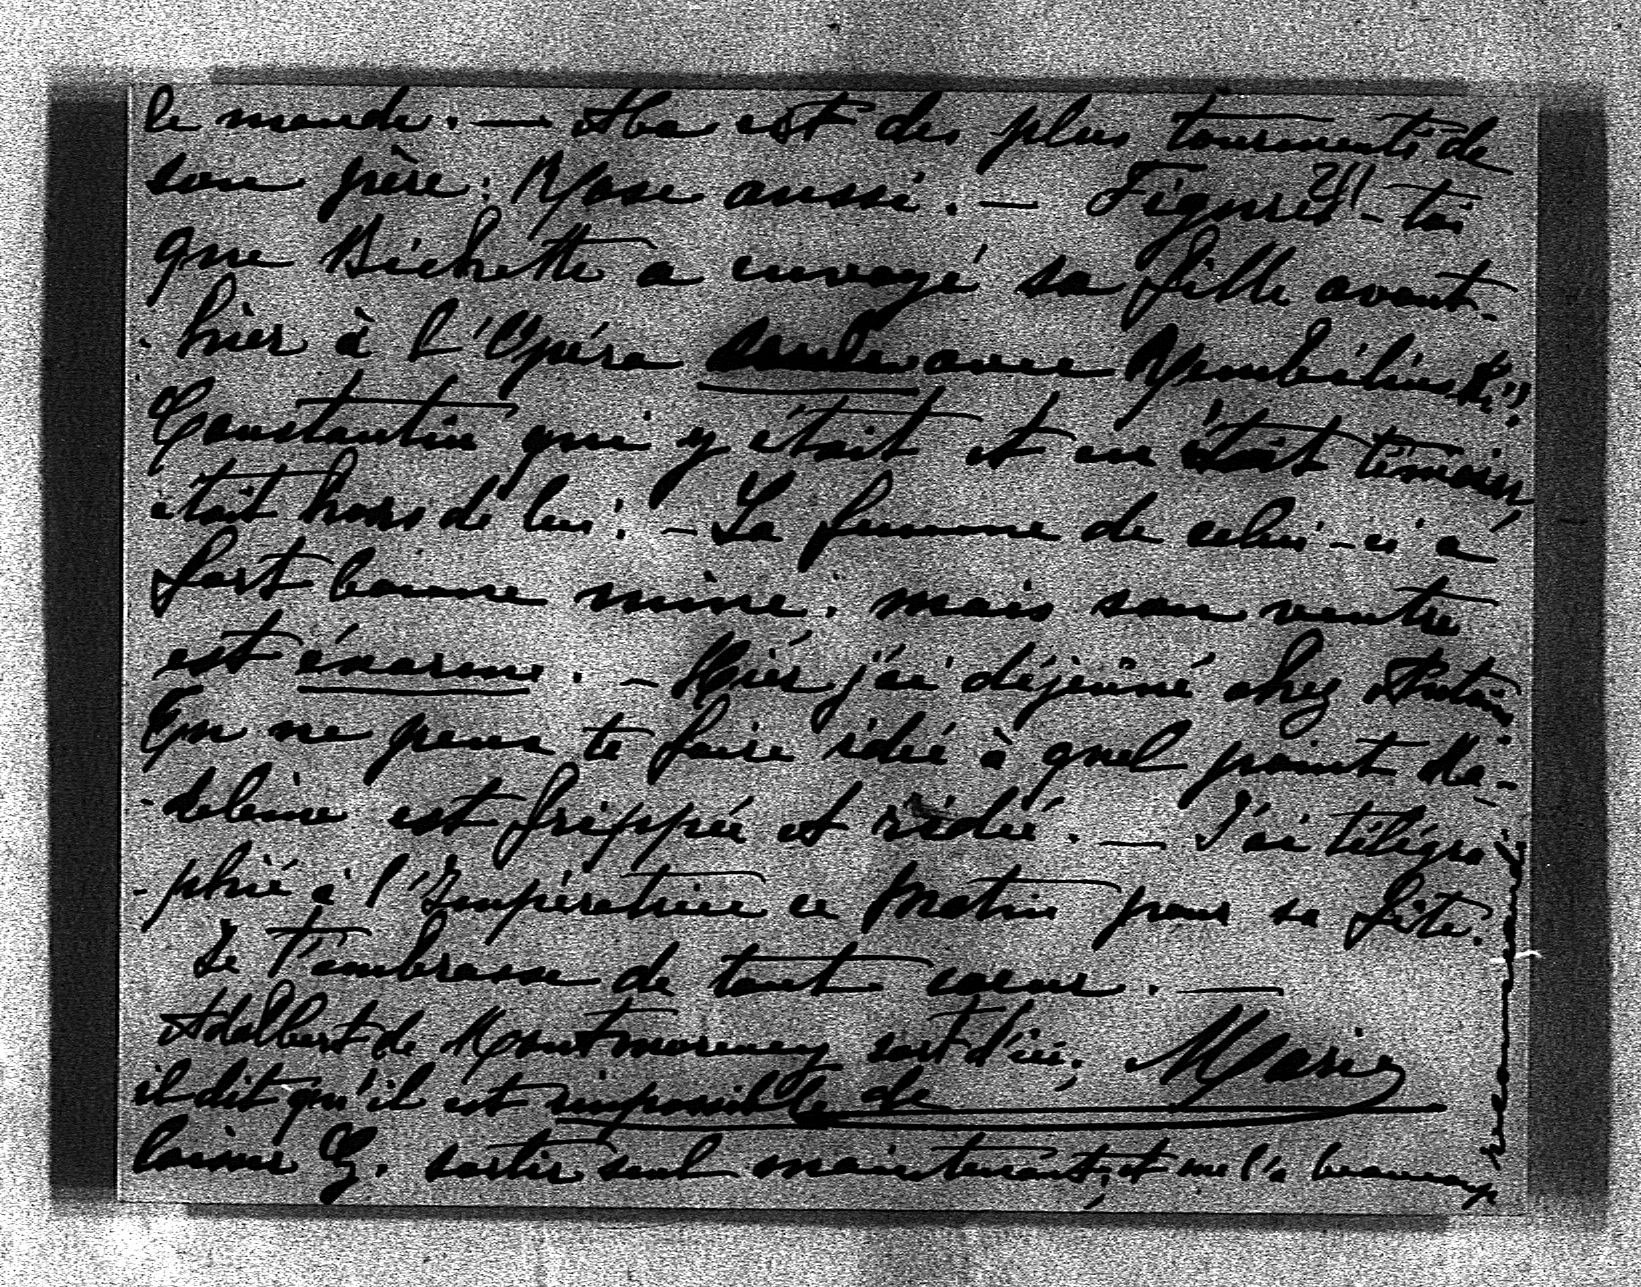 le monde. — Aba est des plus tourmenté de
son père; Rose aussi. — Figures-toi
que Bichette a envoyé sa fille avant-
-hier à l'Opéra seule avec
Constantin qui y était et en était témoin
était hors de lui! — La femme de celui-ci a
fort bonne mine, mais son ventre
est énorme. — Hier j'ai déjeuné chez Antoine
On ne peut te faire idée à quel point Ma-
-deleine est frippée et ridée. — J'ai télégra-
-phié à l'Impératrice ce matin pour sa fête.
Je t'embrasse de tout cœur. —
Adalbert de Montmorency sort d'ici; Marie
il dit qu'il est impossible de
laisser G. sortir seul maintenant; et me l'a beaucoup